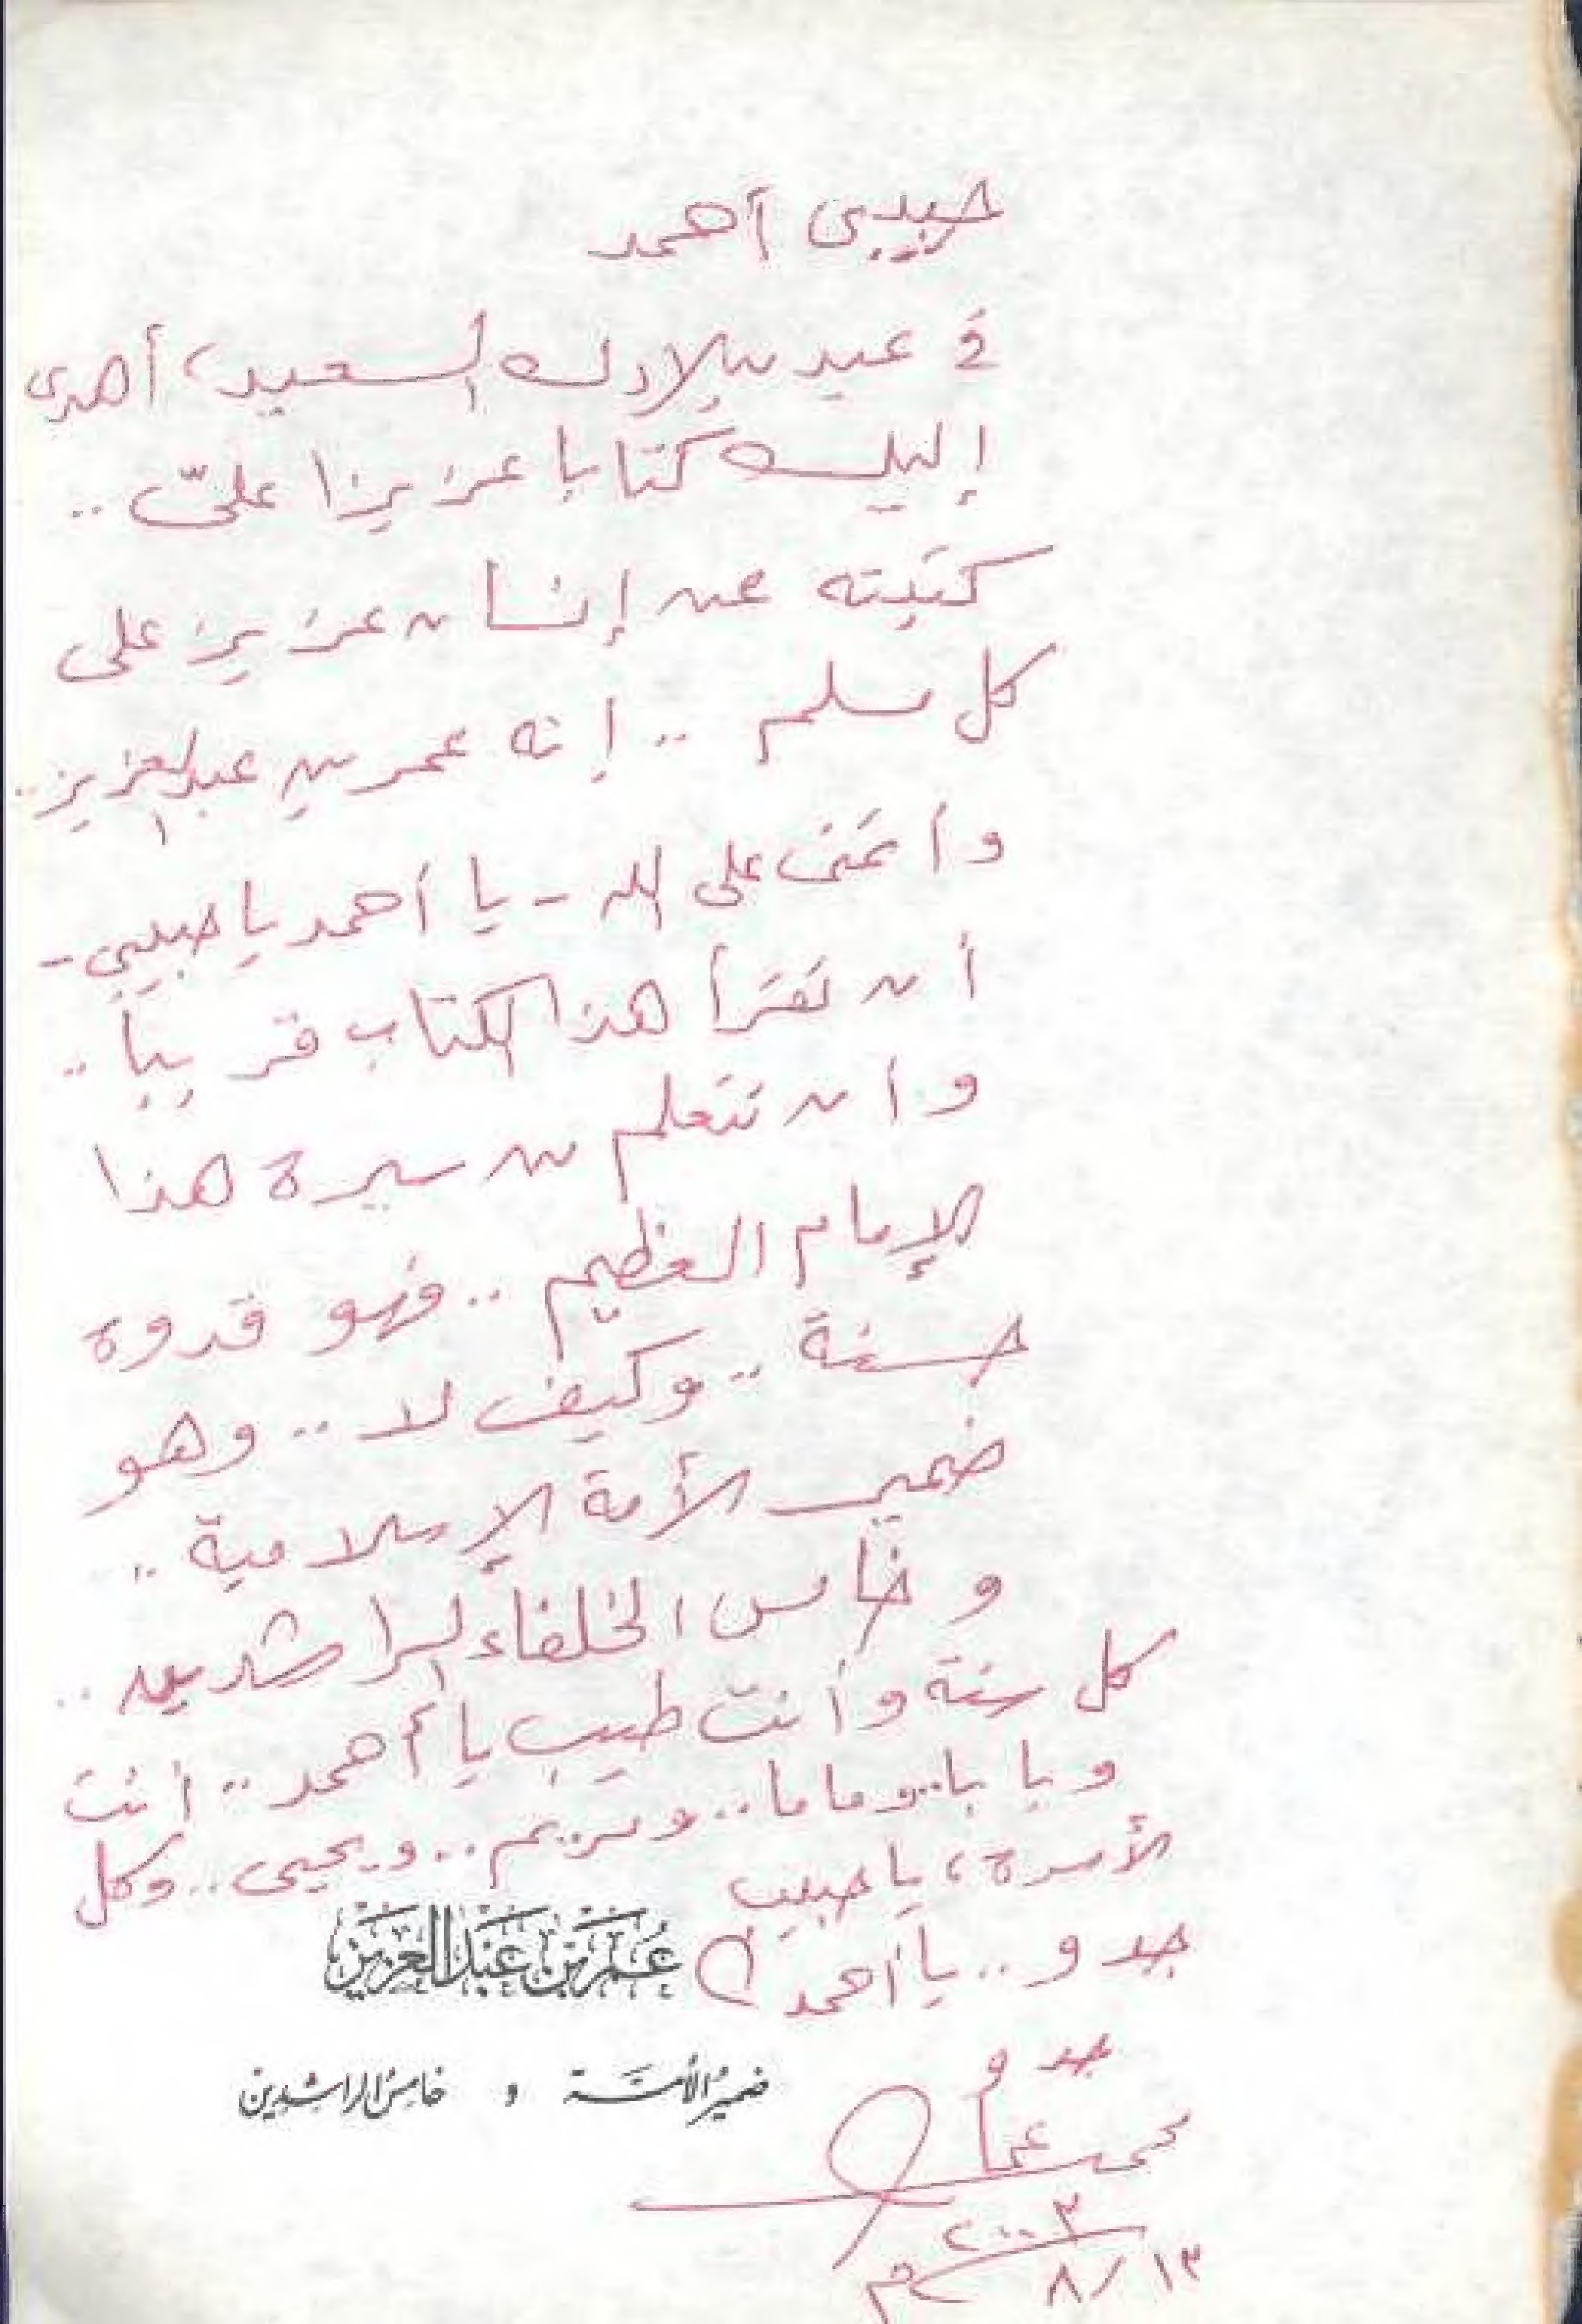 حبيبى أحمد
فى عيد ميلادك السعيد، أهدى
إليك كتابا عزيزا علىّ ..
كتبته عن إنسان عزيز على
كل مسلم .. إنه عمر بن عبد العزيز ..
وأتمنى على الله - يا أحمد يا حبيبى -
أن تقرأ هذا الكتاب قريباً ..
وأن تتعلم من سيرة هذا
الإمام العظيم .. فهو قدوة
حسنة .. وكيف لا .. وهو
ضمير الأمة الإسلامية ..
وخامس الخلفاء الراشدين ..
كل سنة وأنت طيب يا أحمد .. أنت
وبابا .. وماما .. ومريم .. ويحيى .. وكل
الأسرة، يا حبيب
جدو .. يا أحمد
عُمَر بْن عَبْد العَزيز
ضمير الأمّة و خامس الراشدين
جدو
محمد عمارة
٢٠٠٣
١٣/٨ م